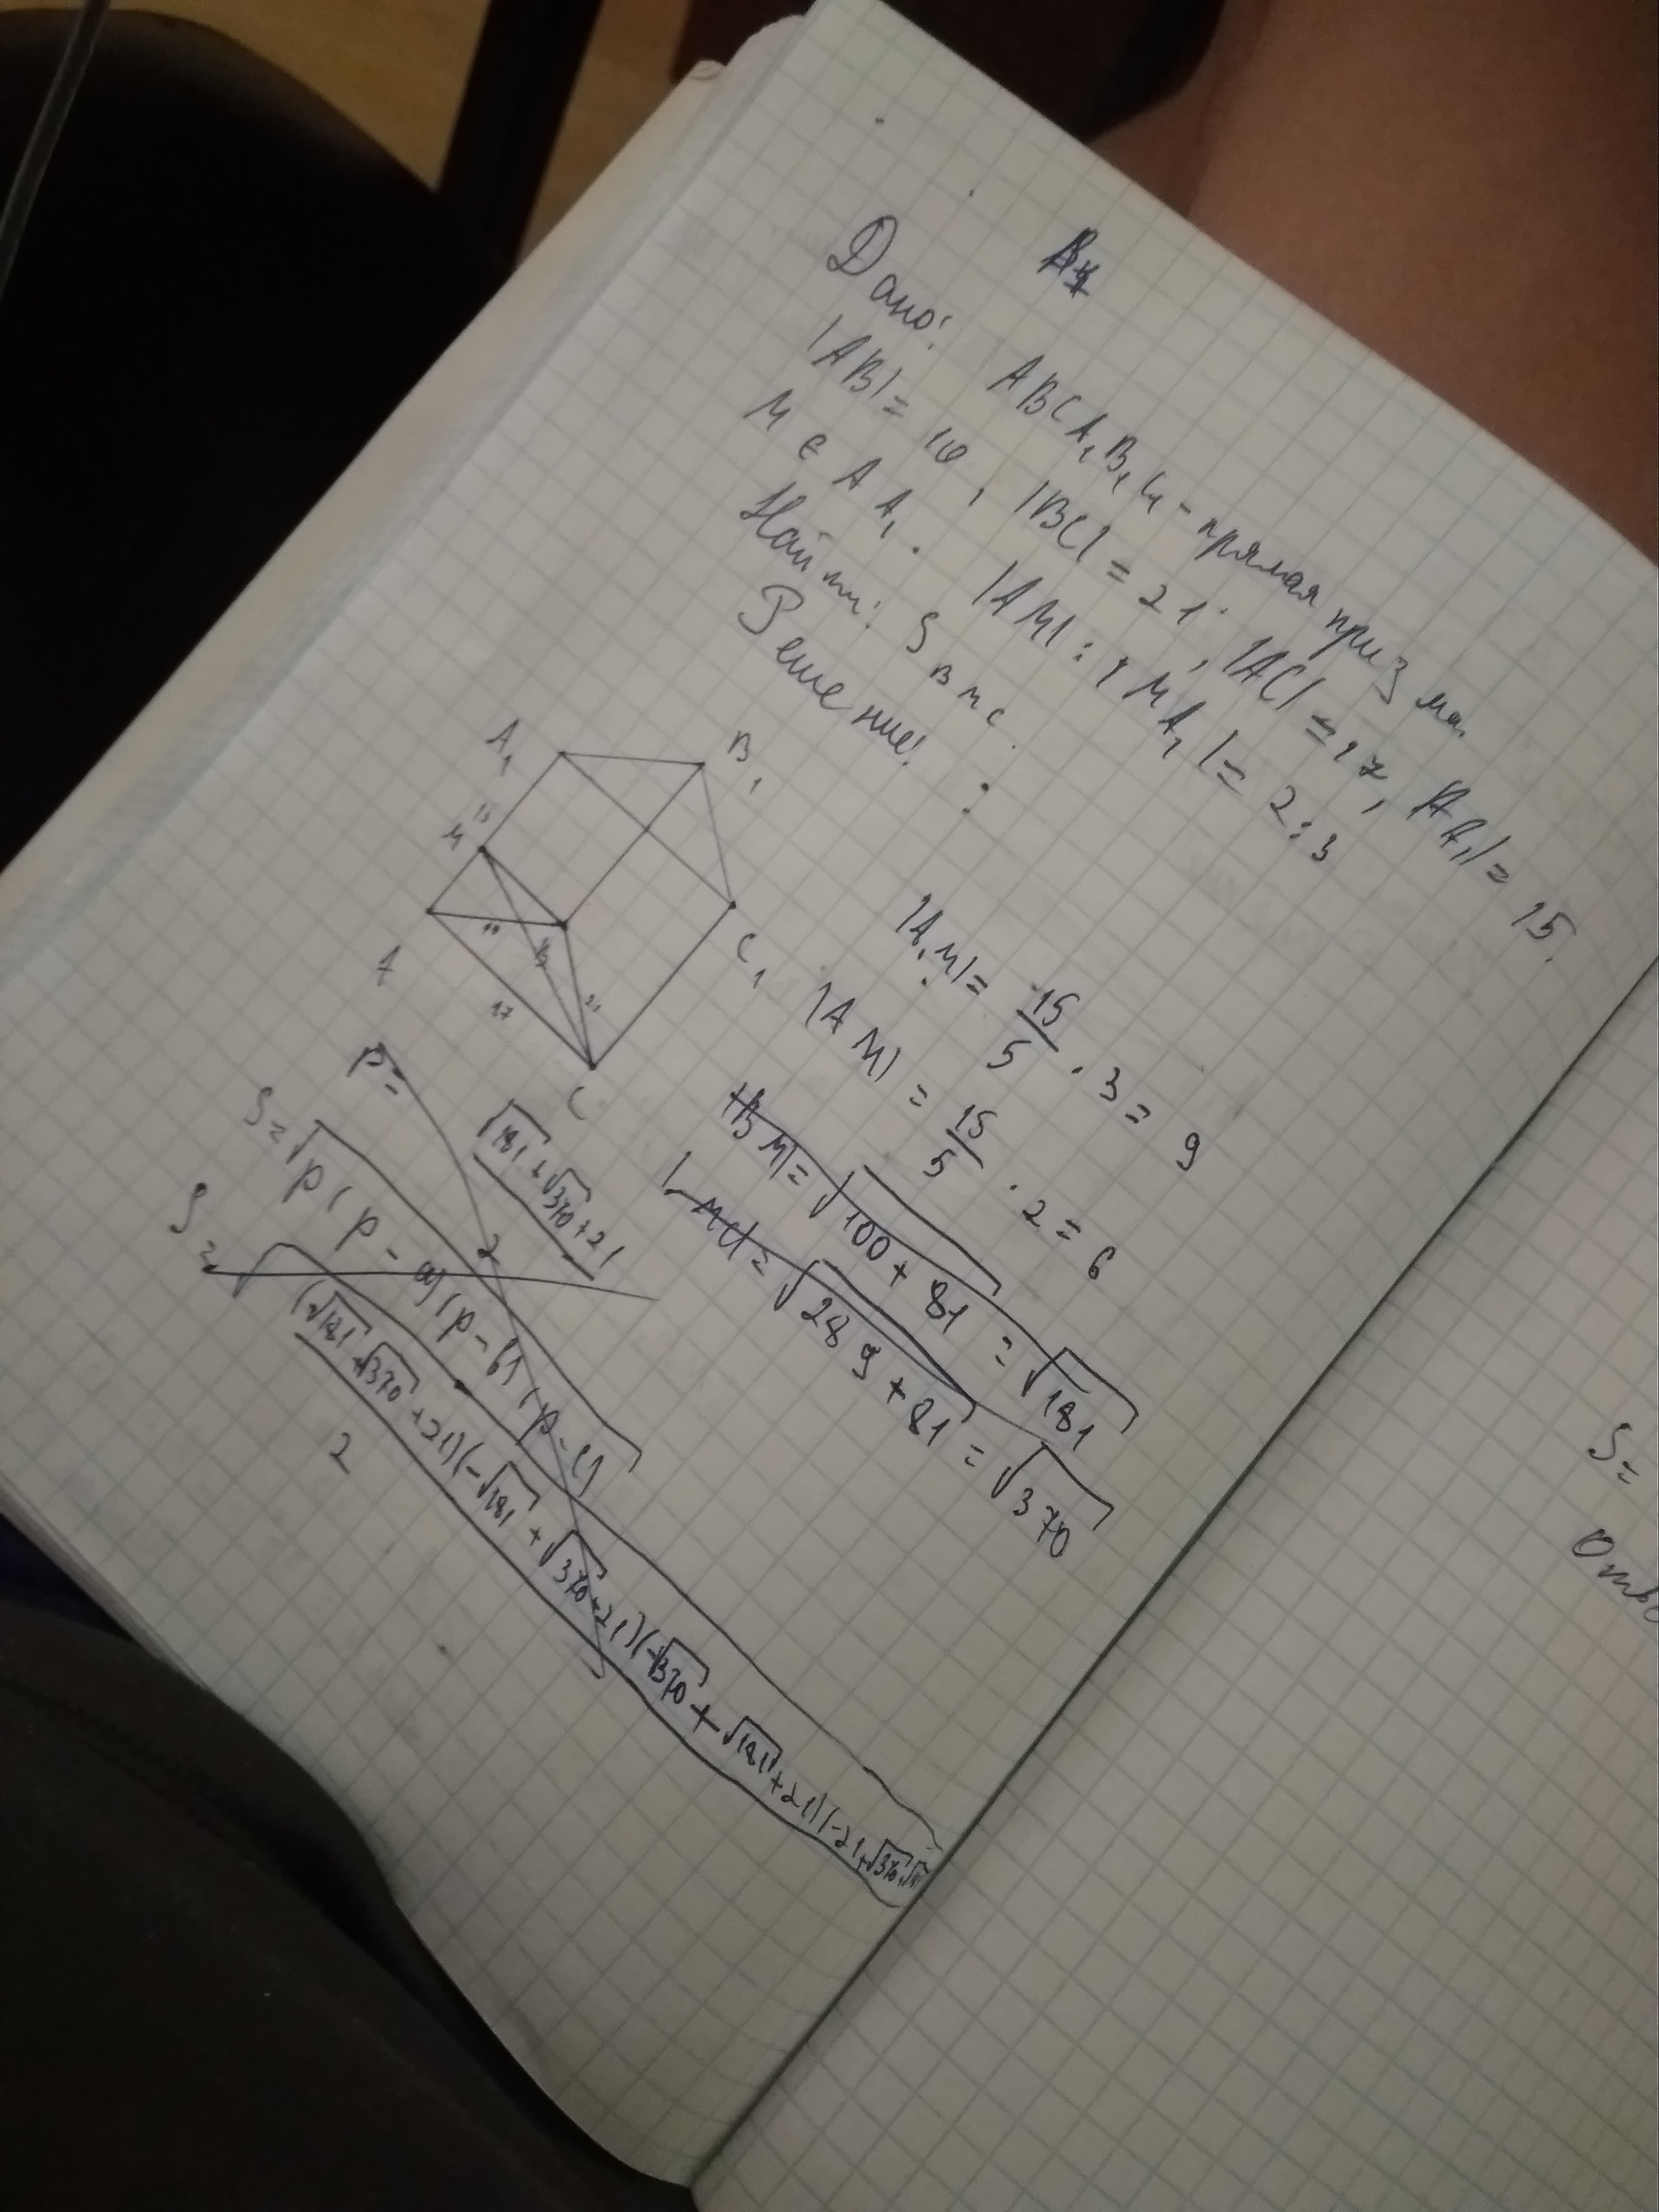 Дано: ABCA₁B₁C₁ - прямая призма.
|AB| = 10, |BC| = 21, |AC| = 17, |AA₁| = 15.
M ∈ AA₁. |AM| : |MA₁| = 2 : 3
Найти: S BMC.
Решение:
A₁
B₁
15
M
C₁
A
10
B
17
21
C
|A₁M| = 15/5 · 3 = 9
|AM| = 15/5 · 2 = 6
|BM| = √(100 + 81) = √181
|MC| = √(289 + 81) = √370
p = (√181 + √370 + 21)/2
S = √(p(p - a)(p - b)(p - c))
S = √((√181 + √370 + 21)(-√181 + √370 + 21)(-√370 + √181 + 21)(-21 + √370 + √181))/2
S =